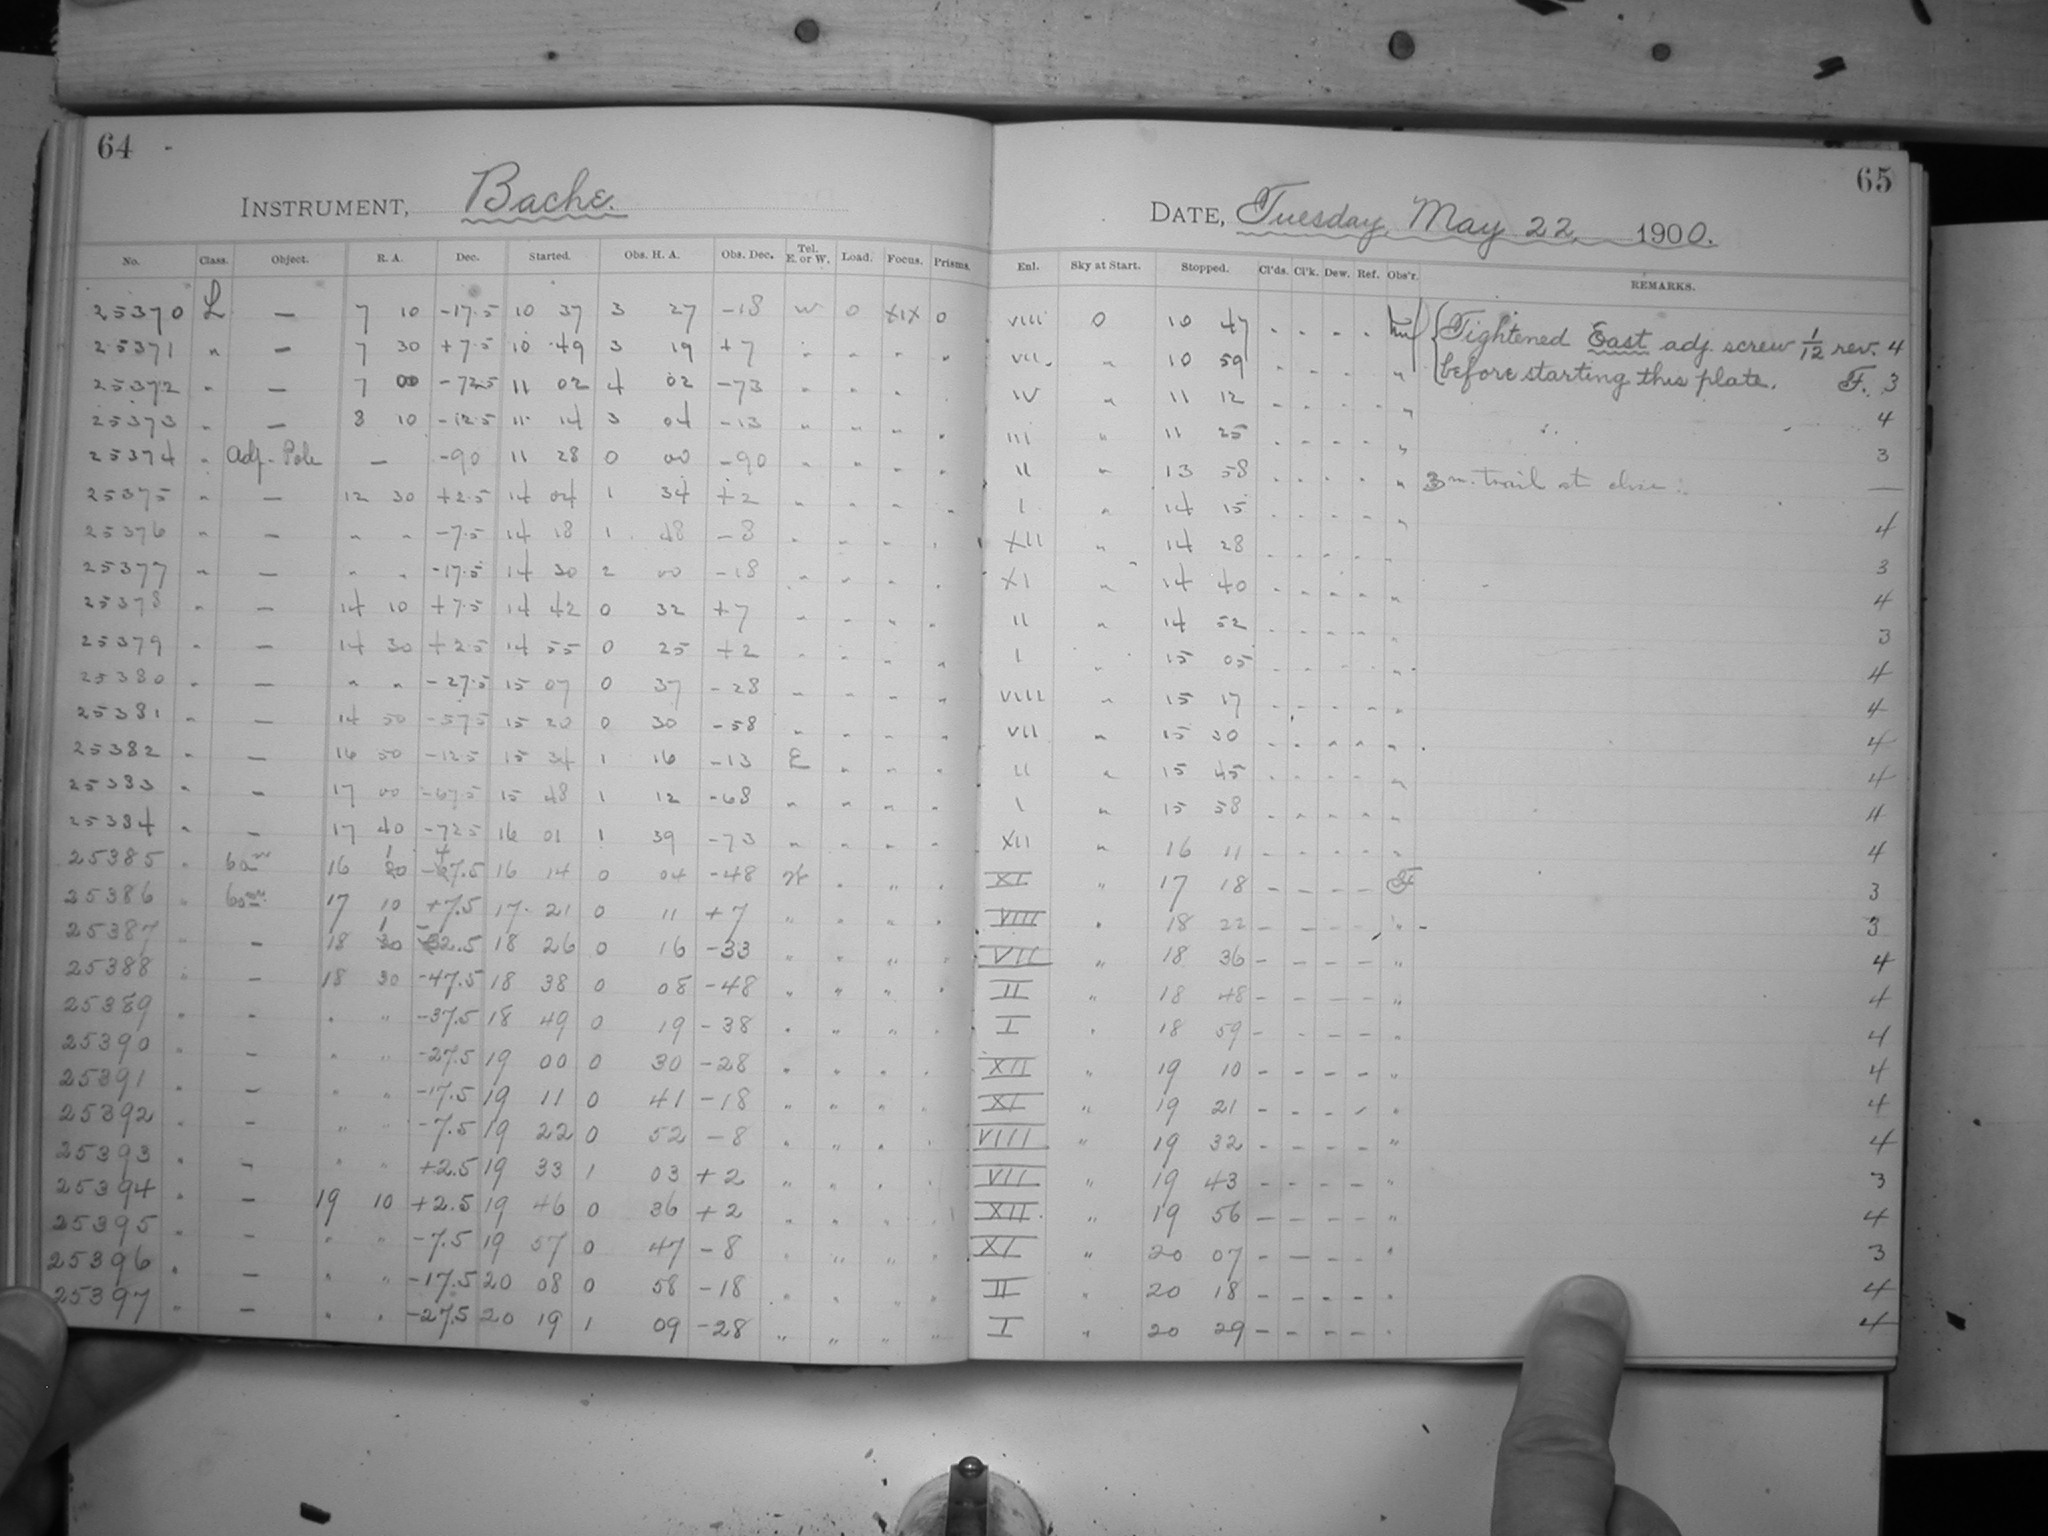 64
INSTRUMENT, Bache.
No. Class. Object. R. A. Dec. Started. Obs. H. A. Obs. Dec. Tel. E. or W. Load. Focus. Prisms.
25370 L — 7 10 -17.5 10 37 3 27 -18 W 0 XIX 0
25371 " — 7 30 +7.5 10 49 3 19 +7 " " " "
25372 " — 7 00 -72.5 11 02 4 02 -73 " " " "
25373 " — 8 10 -12.5 11 14 3 04 -13 " " " "
25374 " Adj. Pole — -90 11 28 0 00 -90 " " " "
25375 " — 12 30 +2.5 14 04 1 34 +2 " " " "
25376 " — " " -7.5 14 18 1 48 -8 " " " "
25377 " — " " -17.5 14 30 2 00 -18 " " " "
25378 " — 14 10 +7.5 14 42 0 32 +7 " " " "
25379 " — 14 30 +2.5 14 55 0 25 +2 " " " "
25380 " — " " -27.5 15 07 0 37 -28 " " " "
25381 " — 14 50 -57.5 15 20 0 30 -58 " " " "
25382 " — 16 50 -12.5 15 34 1 16 -13 E " " "
25383 " — 17 00 -67.5 15 48 1 12 -68 " " " "
25384 " — 17 40 -72.5 16 01 1 39 -73 " " " "
25385 " 60m 16 10 -47.5 16 14 0 04 -48 W " " "
25386 " 60m. 17 10 +7.5 17 21 0 11 +7 " " " "
25387 " — 18 10 -32.5 18 26 0 16 -33 " " " "
25388 " — 18 30 -47.5 18 38 0 08 -48 " " " "
25389 " — " " -37.5 18 49 0 19 -38 " " " "
25390 " — " " -27.5 19 00 0 30 -28 " " " "
25391 " — " " -17.5 19 11 0 41 -18 " " " "
25392 " — " " -7.5 19 22 0 52 -8 " " " "
25393 " — " " +2.5 19 33 1 03 +2 " " " "
25394 " — 19 10 +2.5 19 46 0 36 +2 " " " "
25395 " — " " -7.5 19 57 0 47 -8 " " " "
25396 " — " " -17.5 20 08 0 58 -18 " " " "
25397 " — " " -27.5 20 19 1 09 -28 " " " "
65
DATE, Tuesday, May 22, 1900.
Enl. Sky at Start. Stopped. Cl'ds. Cl'k. Dew. Ref. Obs'r. REMARKS.
VIII 0 10 47 - - - - Tightened East adj. screw 1/12 rev. 4
VII " 10 59 - - - - " before starting this plate. F. 3
IV " 11 12 - - - - " 4
III " 11 25 - - - - " 3
II " 13 58 - - - - " 3m. trail at close. —
I " 14 15 - - - - " 4
XII " 14 28 - - - - " 3
XI " 14 40 - - - - " 4
II " 14 52 - - - - " 3
I " 15 05 - - - - " 4
VIII " 15 17 - - - - " 4
VII " 15 30 - - - - " 4
II " 15 45 - - - - " 4
I " 15 58 - - - - " 4
XII " 16 11 - - - - " 4
XI " 17 18 - - - - F 3
VIII " 18 22 - - - - " 3
VII " 18 36 - - - - " 4
II " 18 48 - - - - " 4
I " 18 59 - - - - " 4
XII " 19 10 - - - - " 4
XI " 19 21 - - - - " 4
VIII " 19 32 - - - - " 4
VII " 19 43 - - - - " 3
XII " 19 56 - - - - " 4
XI " 20 07 - - - - " 3
II " 20 18 - - - - " 4
I " 20 29 - - - - " 4